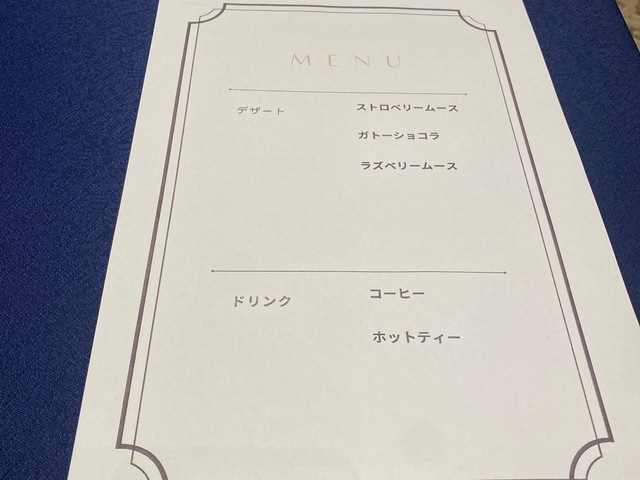 MENU
デザート ストロベリームース
ガトーショコラ
ラズベリームース
ドリンク コーヒー
ホットティー